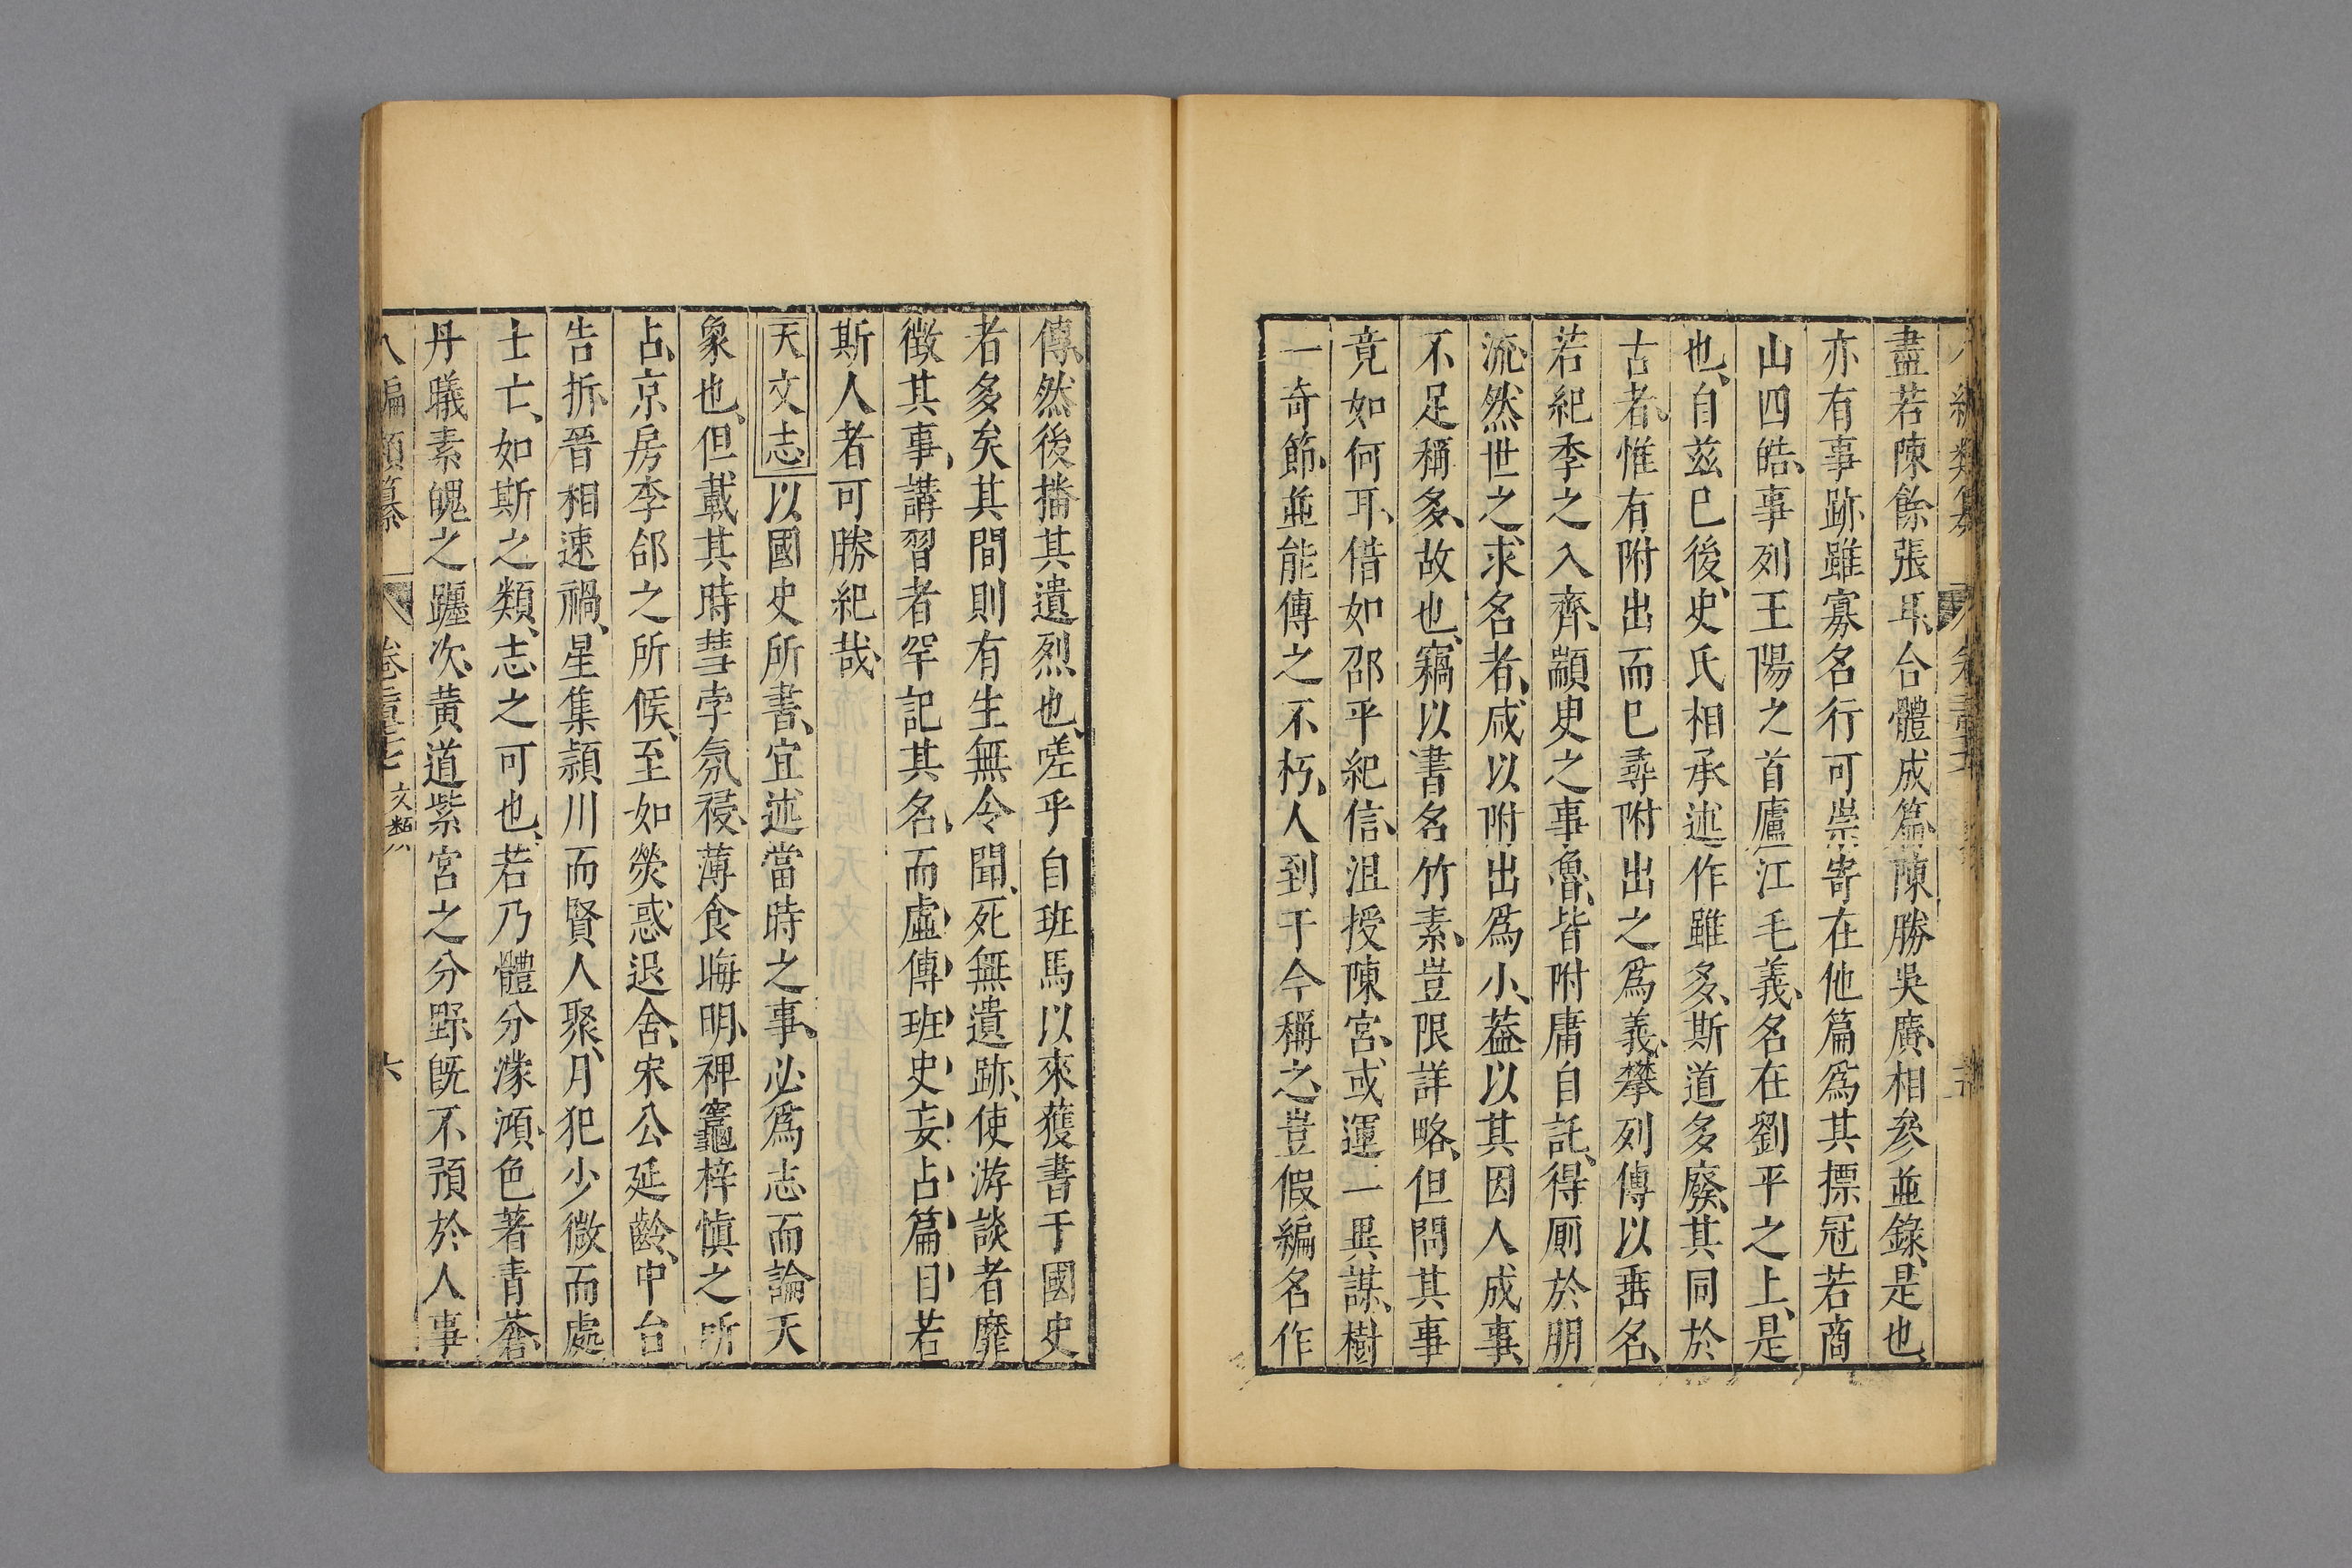 盡若陳餘張耳合體成篇陳勝吳廣相參並錄是也
亦有事跡雖寡名行可崇寄在他篇爲其摽冠若商
山四皓事列王陽之首廬江毛義名在劉平之上是
也自兹已後史氏相承述作雖多斯道多廢其同於
古者惟有附出而已尋附出之爲義攀列傳以垂名
若紀季之入齊顓臾之事魯皆附庸自託得厠於朋
流然世之求名者咸以附出爲小葢以其因人成事
不足稱多故也竊以書名竹素豈限詳略但問其事
竟如何耳借如邵平紀信沮授陳宮或運一異謀樹
一奇節並能傳之不朽人到于今稱之豈假編名作
傳然後播其遺烈也嗟乎自班馬以來獲書于國史
者多矣其間則有生無令聞死無遺跡使游談者靡
徵其事講習者罕記其名而虛傳班史妄占篇目若
斯人者可勝紀哉
天文志以國史所書宜述當時之事必爲志而論天
象也但載其時彗孛氛祲薄食晦明裨竈梓愼之所
占京房李郃之所候至如熒惑退舍宋公延齡中台
告拆晉相速禍星集潁川而賢人聚月犯少微而處
士亡如斯之類志之可也若乃體分濛澒色著青蒼
丹曦素魄之躔次黃道紫宮之分野旣不預於人事
八編類纂 文類 六